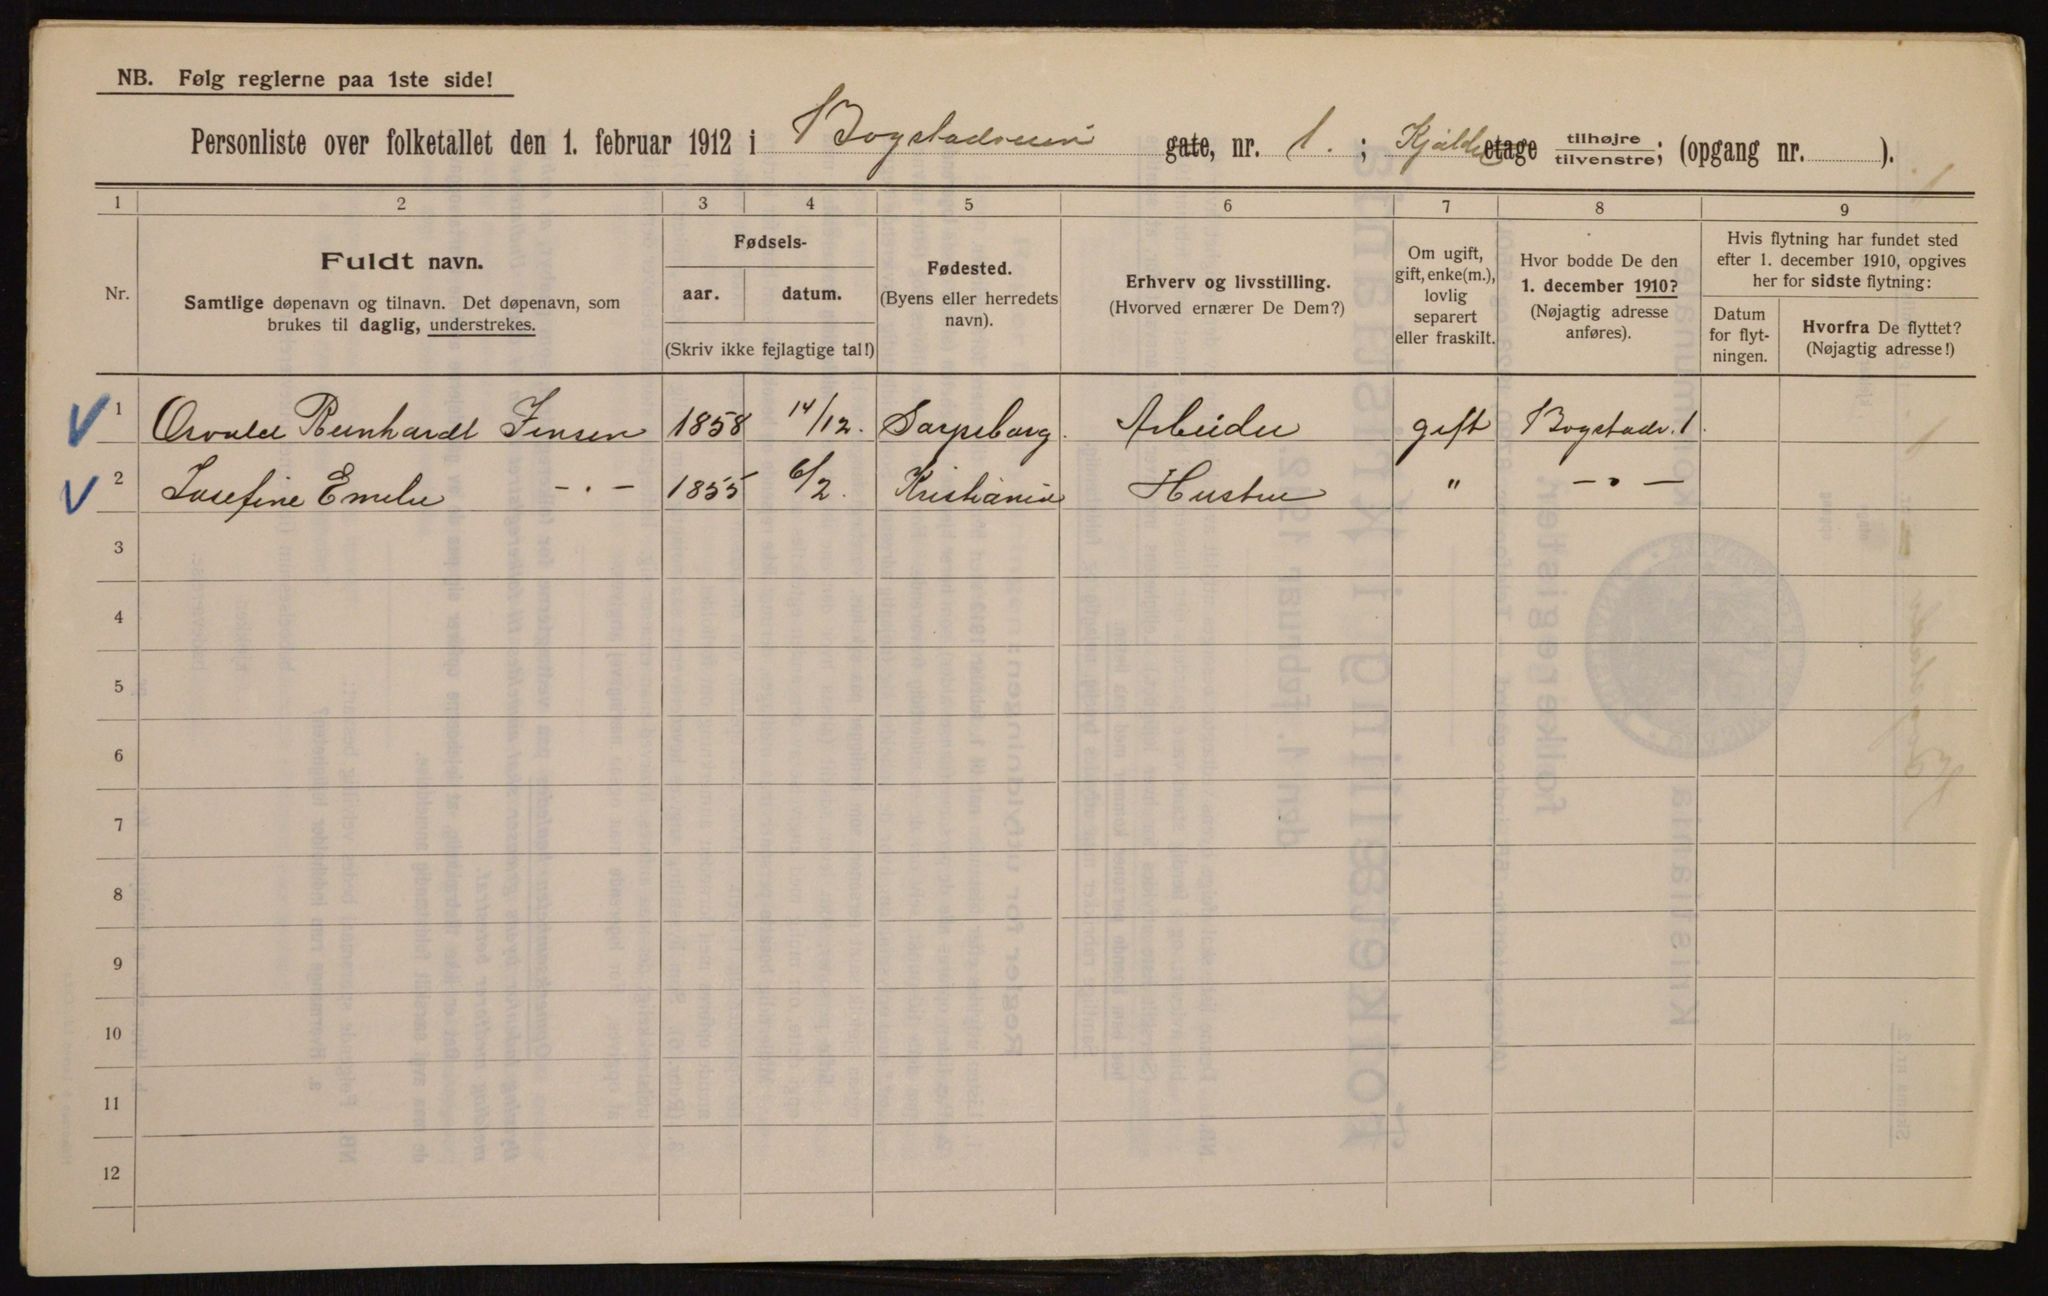 NB. Følg reglerne paa 1ste side!
Personliste over folketallet den 1. februar 1912 i Bogstadveien gate, nr. 1. ; Kjælder etage tilhøjre/tilvenstre; (opgang nr. ).
1 2 3 4 5 6 7 8 9
Nr.
Fuldt navn.
Samtlige døpenavn og tilnavn. Det døpenavn, som
brukes til daglig, understrekes.
Fødsels-
aar. datum.
(Skriv ikke fejlagtige tal!)
Fødested.
(Byens eller herredets
navn).
Erhverv og livsstilling.
(Hvorved ernærer De Dem?)
Om ugift,
gift, enke(m.),
lovlig
separert
eller fraskilt.
Hvor bodde De den
1. december 1910?
(Nøjagtig adresse
anføres).
Hvis flytning har fundet sted
efter 1. december 1910, opgives
her for sidste flytning:
Datum
for flyt-
ningen.
Hvorfra De flyttet?
(Nøjagtig adresse!)
1 Osvald Reinhardt Jensen 1858 14/12. Sarpsborg. Arbeider gift Bogstadv. 1.
2 Josefine Emilie —〃— 1855 6/2. Kristiania Hustru 〃 —〃—
3
4
5
6
7
8
9
10
11
12